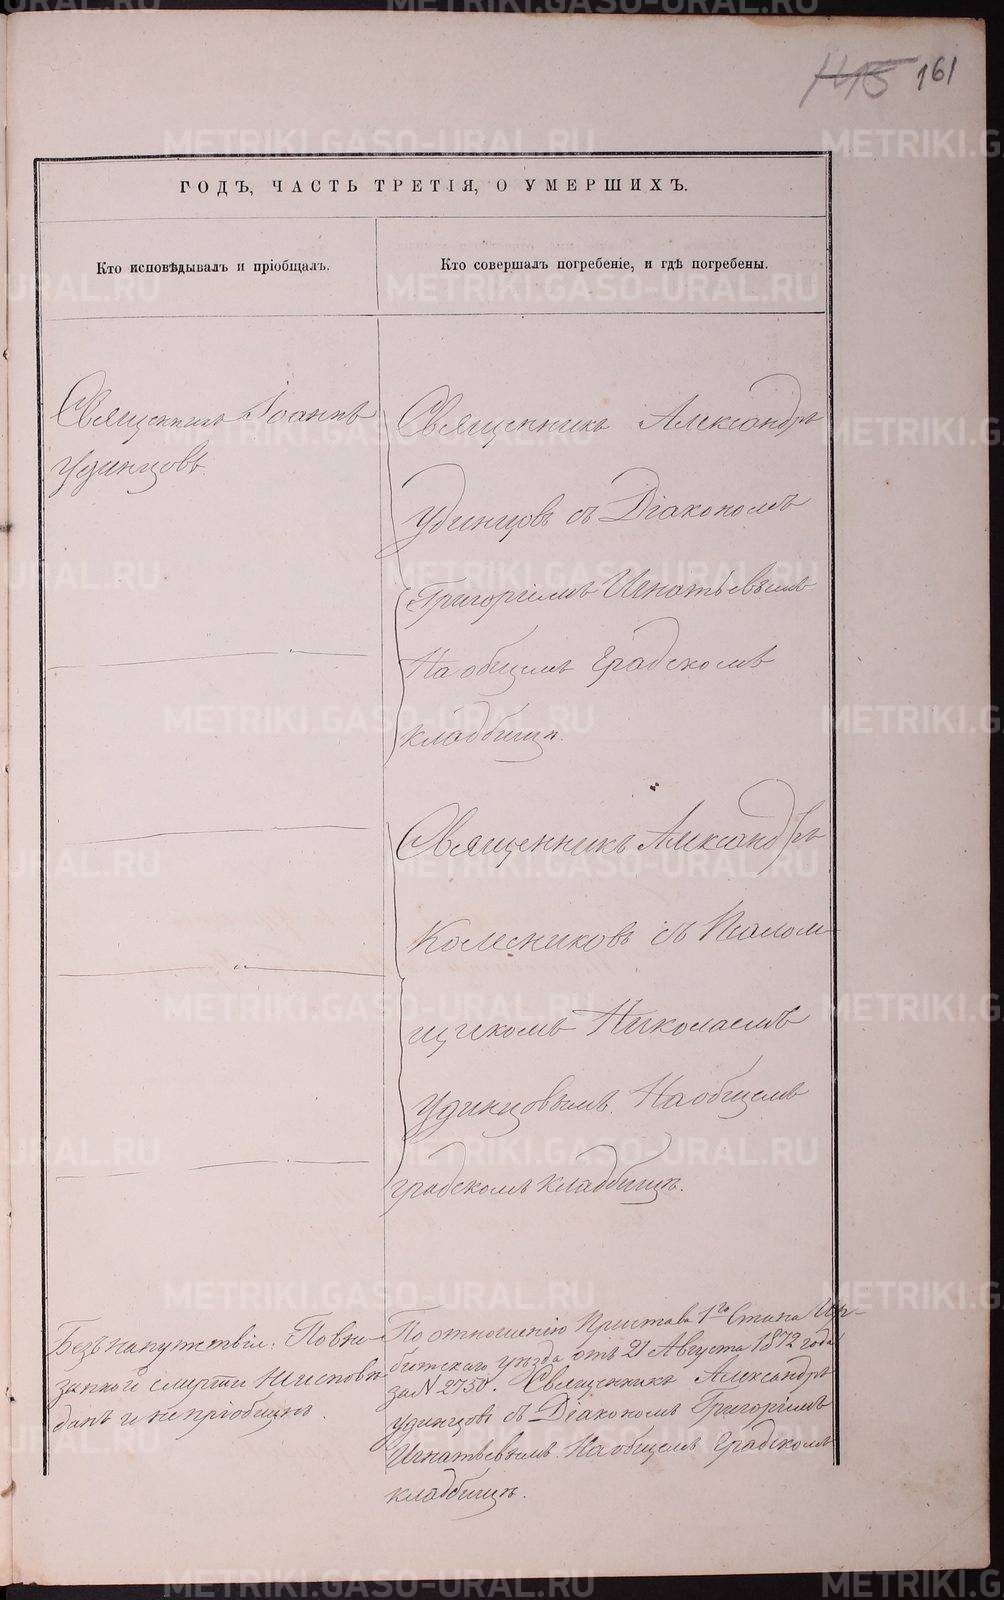 145 161
ГОДЪ, ЧАСТЬ ТРЕТІЯ, О УМЕРШИХЪ.
Кто исповѣдывалъ и пріобщалъ.
Кто совершалъ погребеніе, и гдѣ погребены.
Священникъ Іоаннъ
Удинцовъ.
Священникъ Александръ
Удинцовъ съ Діакономъ
Григоріемъ Игнатьевымъ
На общемъ Градскомъ
кладбищѣ.
Священникъ Александръ
Колесниковъ съ Псалом-
щикомъ Николаемъ
Удинцовымъ. На общемъ
градскомъ кладбищѣ.
Безъ напутствія. По вне-
запной смерти Неисповѣ
данъ и не пріобщенъ.
По отношенію Пристава 1го Стана Ир-
битскаго уѣзда отъ 21 Августа 1872 года
за N 2750. Священникъ Александръ
Удинцовъ съ Діакономъ Григоріемъ
Игнатьевымъ. На общемъ Градскомъ
кладбищѣ.
METRIKI.GASO-URAL.RU